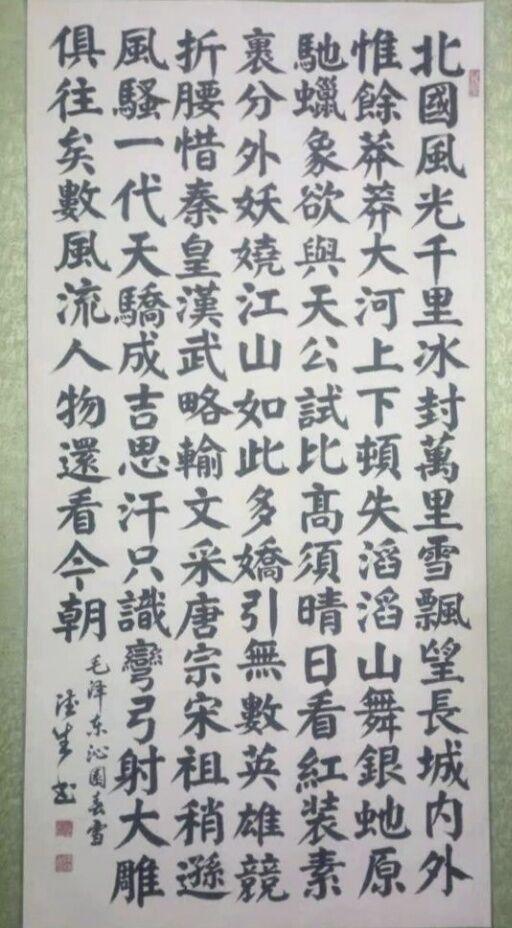 北國風光千里冰封萬里雪飄望長城内外
惟餘莽莽大河上下頓失滔滔山舞銀虵原
馳蠟象欲與天公試比髙須晴日看紅装素
裹分外妖嬈江山如此多嬌引無數英雄競
折腰惜秦皇漢武略輸文采唐宗宋祖稍遜
風騷一代天驕成吉思汗只識彎弓射大雕
俱往矣數風流人物還看今朝
毛泽东沁園春雪